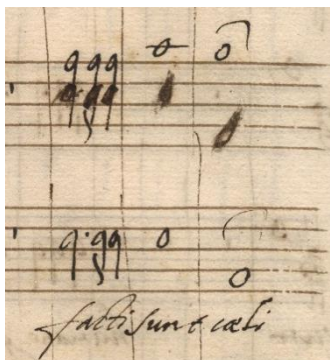 facti sunt cæli